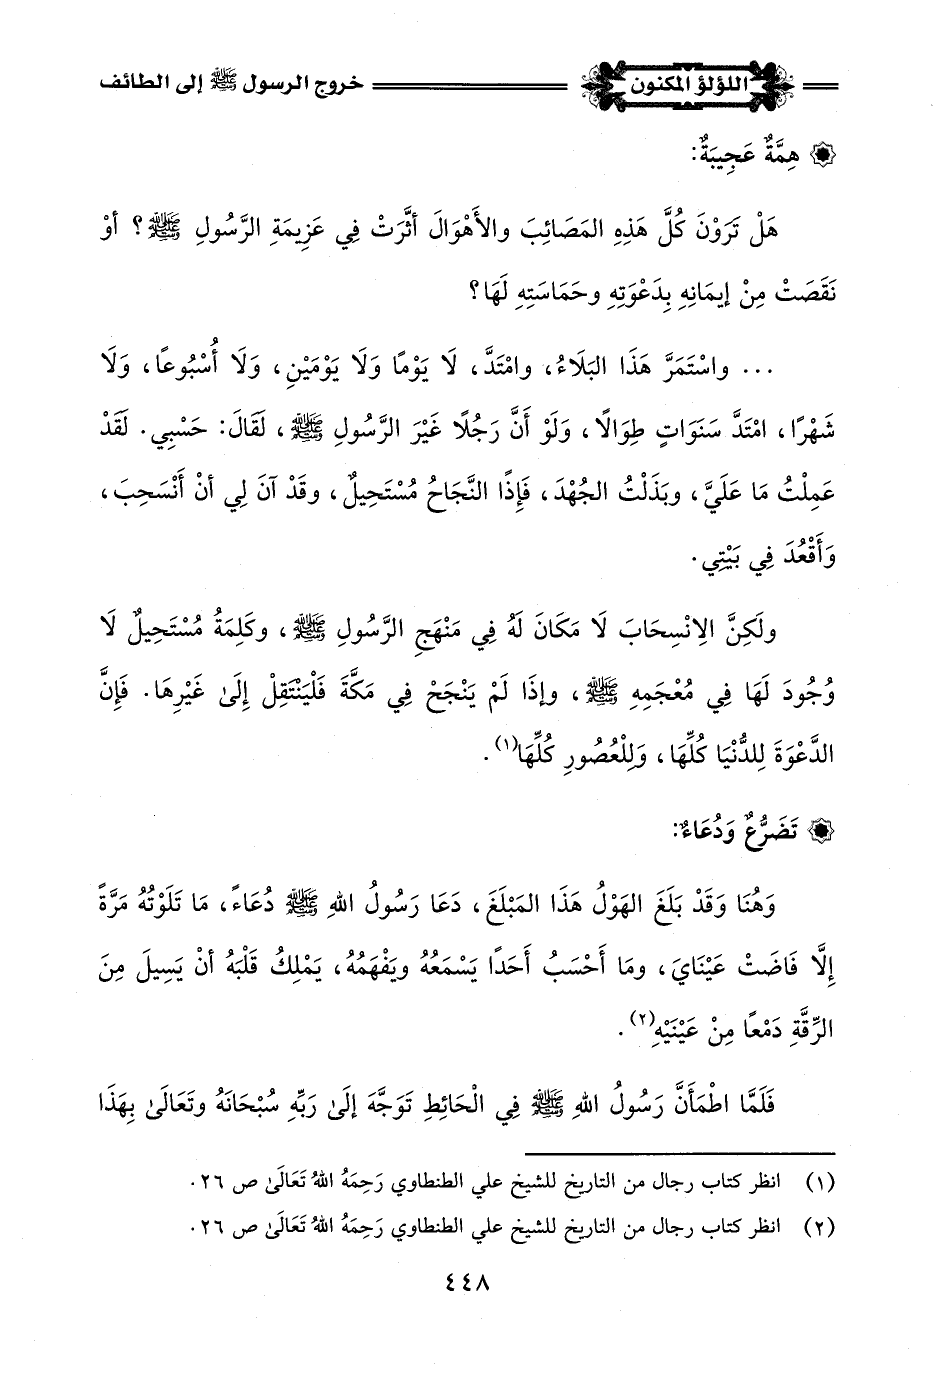 اللؤلؤ المكنون خروج الرسول ﷺ إلى الطائف
هِمَّةٌ عَجِيبَةٌ:
هَلْ تَرَوْنَ كُلَّ هَذِهِ المَصَائِبَ والأَهْوَالَ أثَّرَتْ فِي عَزِيمَةِ الرَّسُولِ ﷺ؟ أوْ
نَقَصَتْ مِنْ إيمَانِهِ بِدَعْوَتِهِ وحَمَاسَتِهِ لَهَا؟
... واسْتَمَرَّ هَذَا البَلَاءُ، وامْتَدَّ، لَا يَوْمًا وَلَا يَوْمَيْنِ، وَلَا أُسْبُوعًا، وَلَا
شَهْرًا، امْتَدَّ سَنَوَاتٍ طِوَالًا، وَلَوْ أنَّ رَجُلًا غَيْرَ الرَّسُولِ ﷺ، لَقَالَ: حَسْبِي. لَقَدْ
عَمِلْتُ مَا عَلَيَّ، وبَذَلْتُ الجُهْدَ، فَإِذًا النَّجَاحُ مُسْتَحِيلٌ، وقَدْ آنَ لِي أنْ أَنْسَحِبَ،
وَأَقْعُدَ فِي بَيْتِي.
ولَكِنَّ الِانْسِحَابَ لَا مَكَانَ لَهُ فِي مَنْهَجِ الرَّسُولِ ﷺ، وكَلِمَةُ مُسْتَحِيلٌ لَا
وُجُودَ لَهَا فِي مُعْجَمِهِ ﷺ، وإذَا لَمْ يَنْجَحْ فِي مَكَّةَ فَلْيَنْتَقِلْ إِلَىٰ غَيْرِهَا. فَإِنَّ
الدَّعْوَةَ لِلدُّنْيَا كُلِّهَا، وَلِلْعُصُورِ كُلِّهَا(١).
تَضَرُّعٌ وَدُعَاءٌ:
وَهُنَا وَقَدْ بَلَغَ الهَوْلُ هَذَا المَبْلَغَ، دَعَا رَسُولُ اللهِ ﷺ دُعَاءً، مَا تَلَوْتُهُ مَرَّةً
إِلَّا فَاضَتْ عَيْنَايَ، ومَا أَحْسَبُ أَحَدًا يَسْمَعُهُ ويَفْهَمُهُ، يَمْلِكُ قَلْبَهُ أنْ يَسِيلَ مِنَ
الرِّقَّةِ دَمْعًا مِنْ عَيْنَيْهِ(٢).
فَلَمَّا اطْمَأَنَّ رَسُولُ اللهِ ﷺ فِي الْحَائِطِ تَوَجَّهَ إلَىٰ رَبِّهِ سُبْحَانَهُ وتَعَالَىٰ بِهَذَا
(١) انظر كتاب رجال من التاريخ للشيخ علي الطنطاوي رَحِمَهُ اللهُ تَعَالَىٰ ص ٢٦.
(٢) انظر كتاب رجال من التاريخ للشيخ علي الطنطاوي رَحِمَهُ اللهُ تَعَالَىٰ ص ٢٦.
٤٤٨